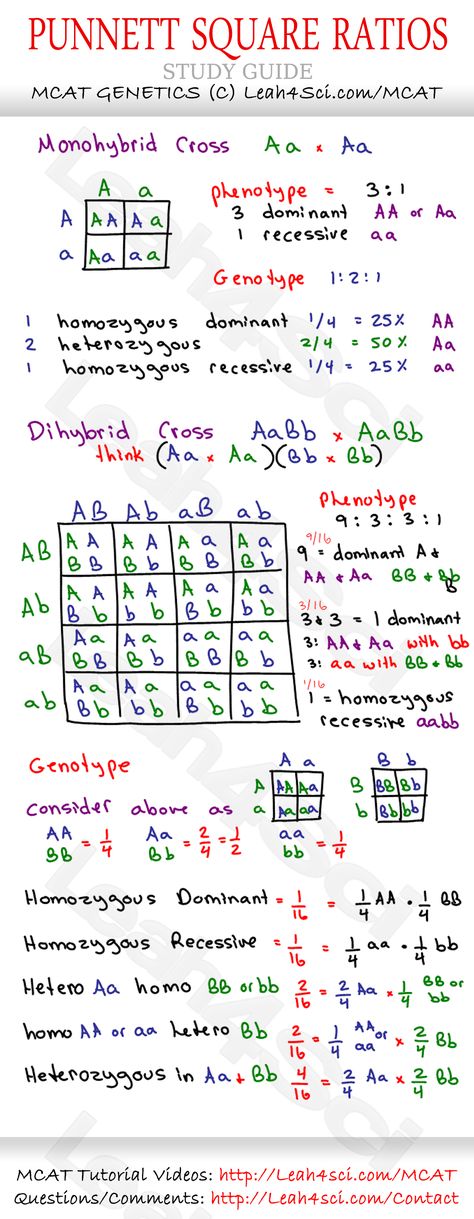 PUNNETT SQUARE RATIOS
STUDY GUIDE
MCAT GENETICS (C) Leah4Sci.com/MCAT
Monohybrid Cross Aa x Aa
A a
A AA Aa
a Aa aa
phenotype = 3:1
3 dominant AA or Aa
1 recessive aa
Genotype 1:2:1
1 homozygous dominant 1/4 = 25% AA
2 heterozygous 2/4 = 50% Aa
1 homozygous recessive 1/4 = 25% aa
Dihybrid Cross AaBb x AaBb
think (Aa x Aa)(Bb x Bb)
AB Ab aB ab
AB AA AA aA Aa
BB Bb BB Bb
Ab AA AA Aa Aa
Bb bb Bb bb
aB Aa Aa aa aa
BB Bb BB Bb
ab Aa Aa aa aa
Bb bb Bb bb
Phenotype
9:3:3:1
9/16
9 = dominant A &
B
AA & Aa BB & Bb
3/16
3 & 3 = 1 dominant
3: AA & Aa with bb
3: aa with BB & Bb
1/16
1 = homozygous
recessive aabb
Genotype
Consider above as
A a
A AA Aa
a Aa aa
B b
B BB Bb
b Bb bb
AA BB = 1/4
Aa Bb = 2/4 = 1/2
aa bb = 1/4
Homozygous Dominant = 1/16 = 1/4 AA · 1/4 BB
Homozygous Recessive = 1/16 = 1/4 aa · 1/4 bb
Hetero Aa homo BB or bb 2/16 = 2/4 Aa x 1/4 BB or bb
homo AA or aa hetero Bb 2/16 = 1/4 AA or aa x 2/4 Bb
Heterozygous in Aa + Bb 4/16 = 2/4 Aa x 2/4 Bb
MCAT Tutorial Videos: http://Leah4sci.com/MCAT
Questions/Comments: http://Leah4sci.com/Contact
Leah4Sci
Leah4Sci
Leah4Sci
Leah4Sci